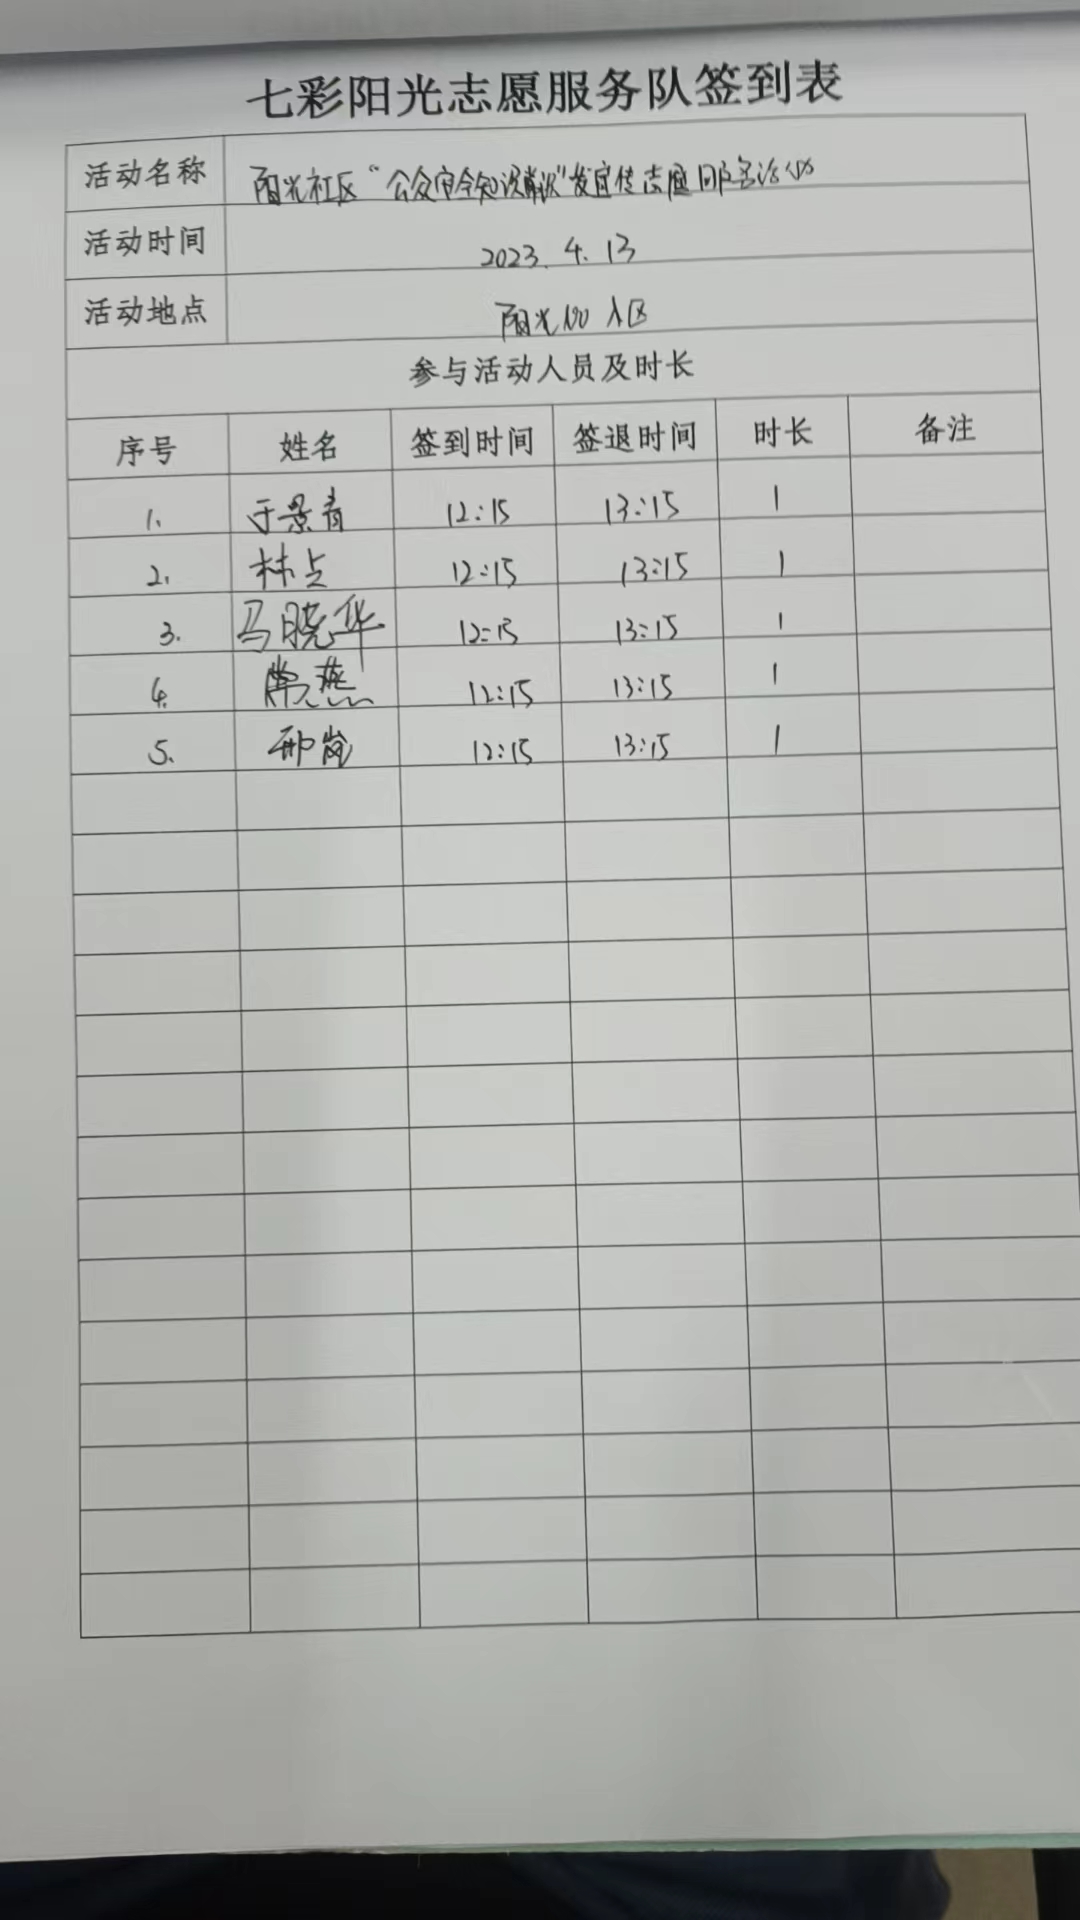 七彩阳光志愿服务队签到表
活动名称 阳光社区“公众安全知识普及”宣传志愿服务活动
活动时间 2023.4.13
活动地点 阳光100小区
参与活动人员及时长
序号 姓名 签到时间 签退时间 时长 备注
1. 于景青 12:15 13:15 1
2. 林 12:15 13:15 1
3. 马晓华 12:15 13:15 1
4. 常燕 12:15 13:15 1
5. 邢岚 12:15 13:15 1